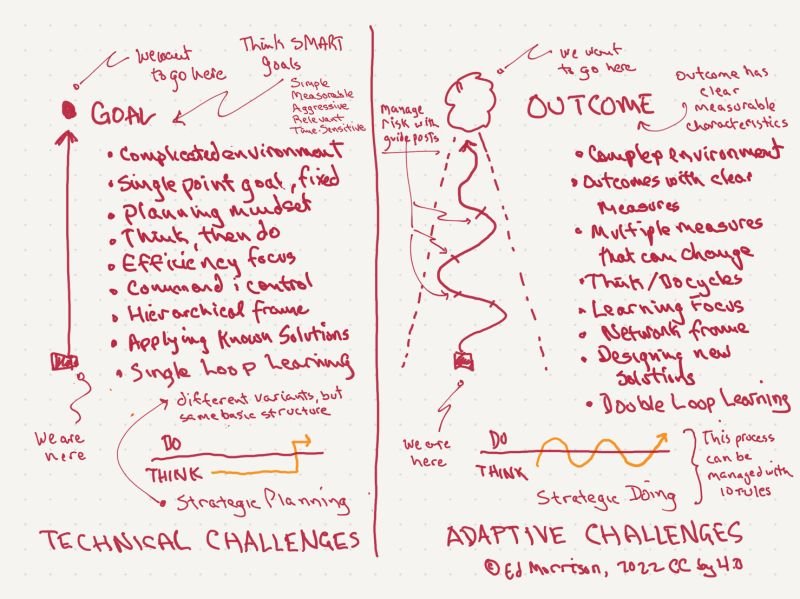 We want
to go here
Think SMART
Goals
Simple
Measurable
Aggressive
Relevant
Time-Sensitive
GOAL
• Complicated environment
• Single point goal, fixed
• Planning mindset
• Think, then do
• Efficiency focus
• Command i control
• Hierarchical frame
• Applying Known Solutions
• Single Loop Learning
different variants, but
same basic structure
We are
here
DO
THINK
• Strategic Planning
TECHNICAL CHALLENGES
We want
to go here
Manage
risk with
guide posts
OUTCOME
Outcome has
clear
measurable
characteristics
• Complex environment
• Outcomes with clear
Measures
• Multiple measures
that can change
• Think/Do cycles
• Learning Focus
• Network frame
• Designing new
solutions
• Double Loop Learning
We are
here
DO
THINK
Strategic Doing
This process
can be
managed with
10 rules
ADAPTIVE CHALLENGES
© Ed Morrison, 2022 CC by 4.0